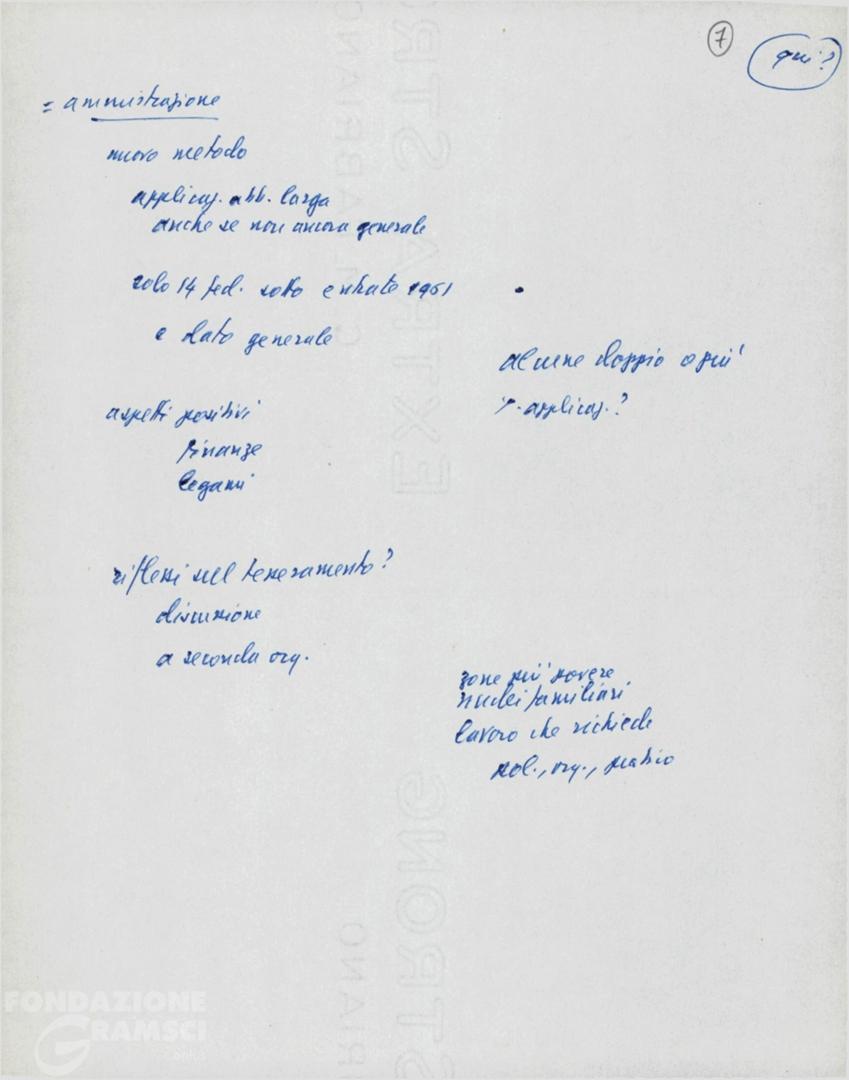 7
qui?
= amministrazione
nuovo metodo
applicaz. abb. larga
anche se non ancora generale
solo 14 fed. sotto entrate 1961
e dato generale
alcune doppio o più
applicaz.?
aspetti positivi
finanze
legami
riflessi sul tesseramento?
discussione
a seconda org.
zone più povere
nuclei familiari
lavoro che richiede
pol., org., pratico
EXTRA STRONG
FABRIANO
FONDAZIONE
GRAMSCI
onlus